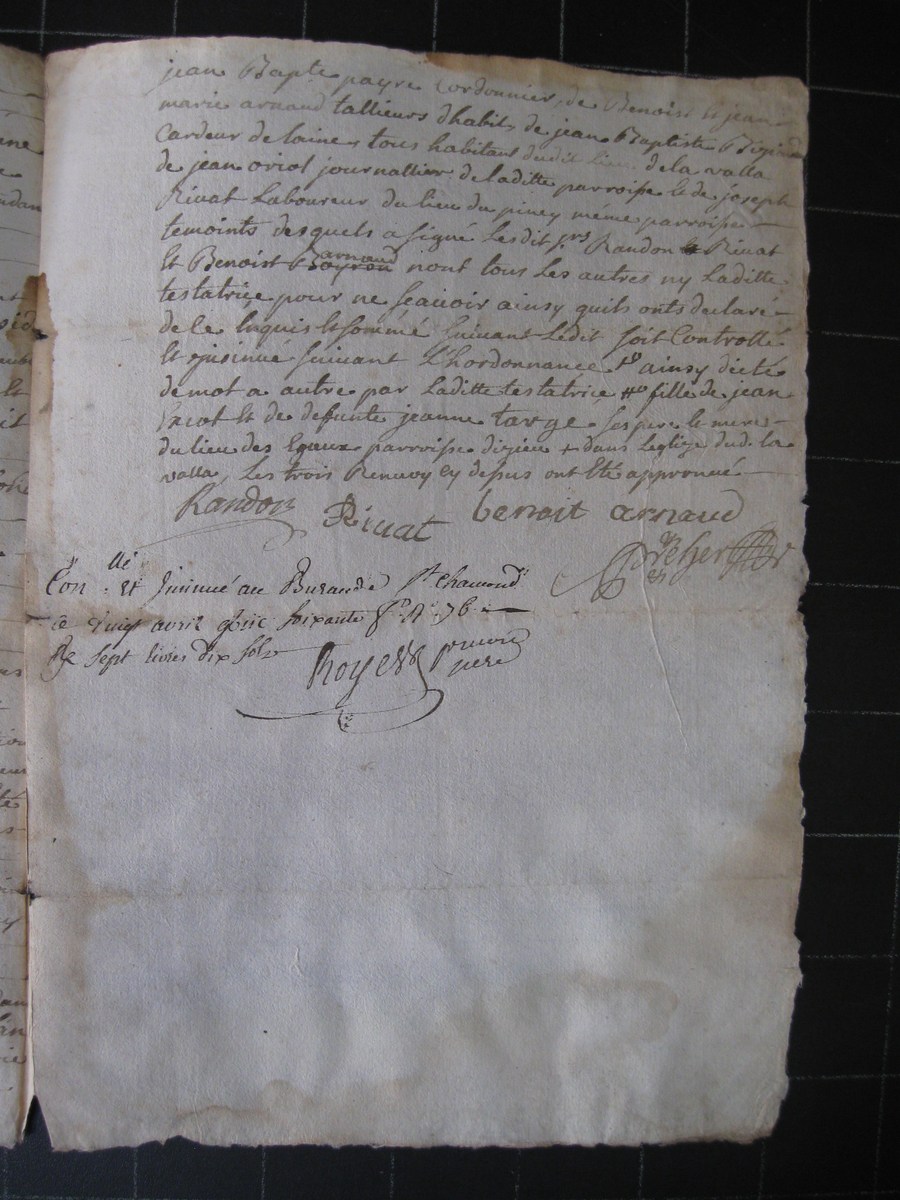 jean Bapte payre Cordonnier, de Benoist et jean
marie arnaud tallieurs dhabits de jean Baptiste
Cardeur de laine tous habitant dudit lieu de la valla
de jean oriol journallier de laditte parroisse et de joseph
Rivat Laboureur du lieu du piney même parroisse
temoints desquels a signé lesdit srs Randon Rivat
Et Benoist arnaud nont tous les autres ny laditte
testatrice pour ne scavoir ainsy quils onts declaré
de ce Enquis et sommé suivant Ledit soit Controllé
Et insinué suivant L'hordonnance ainsy dicté
de mot a autre par laditte testatrice fille de jean
et de defunte jeanne targe ses pere et mere
du lieu des Eyaux parroisse dizieu + dans leglize dud. la
valla, Les trois Renvoy cy dessus ont Eté approuvé
Randon Rivat benoit arnaud
Conllé et Insinué au Bureau de St chamond
ce vingt avril soixante
Rç sept livres dix sols
Royer